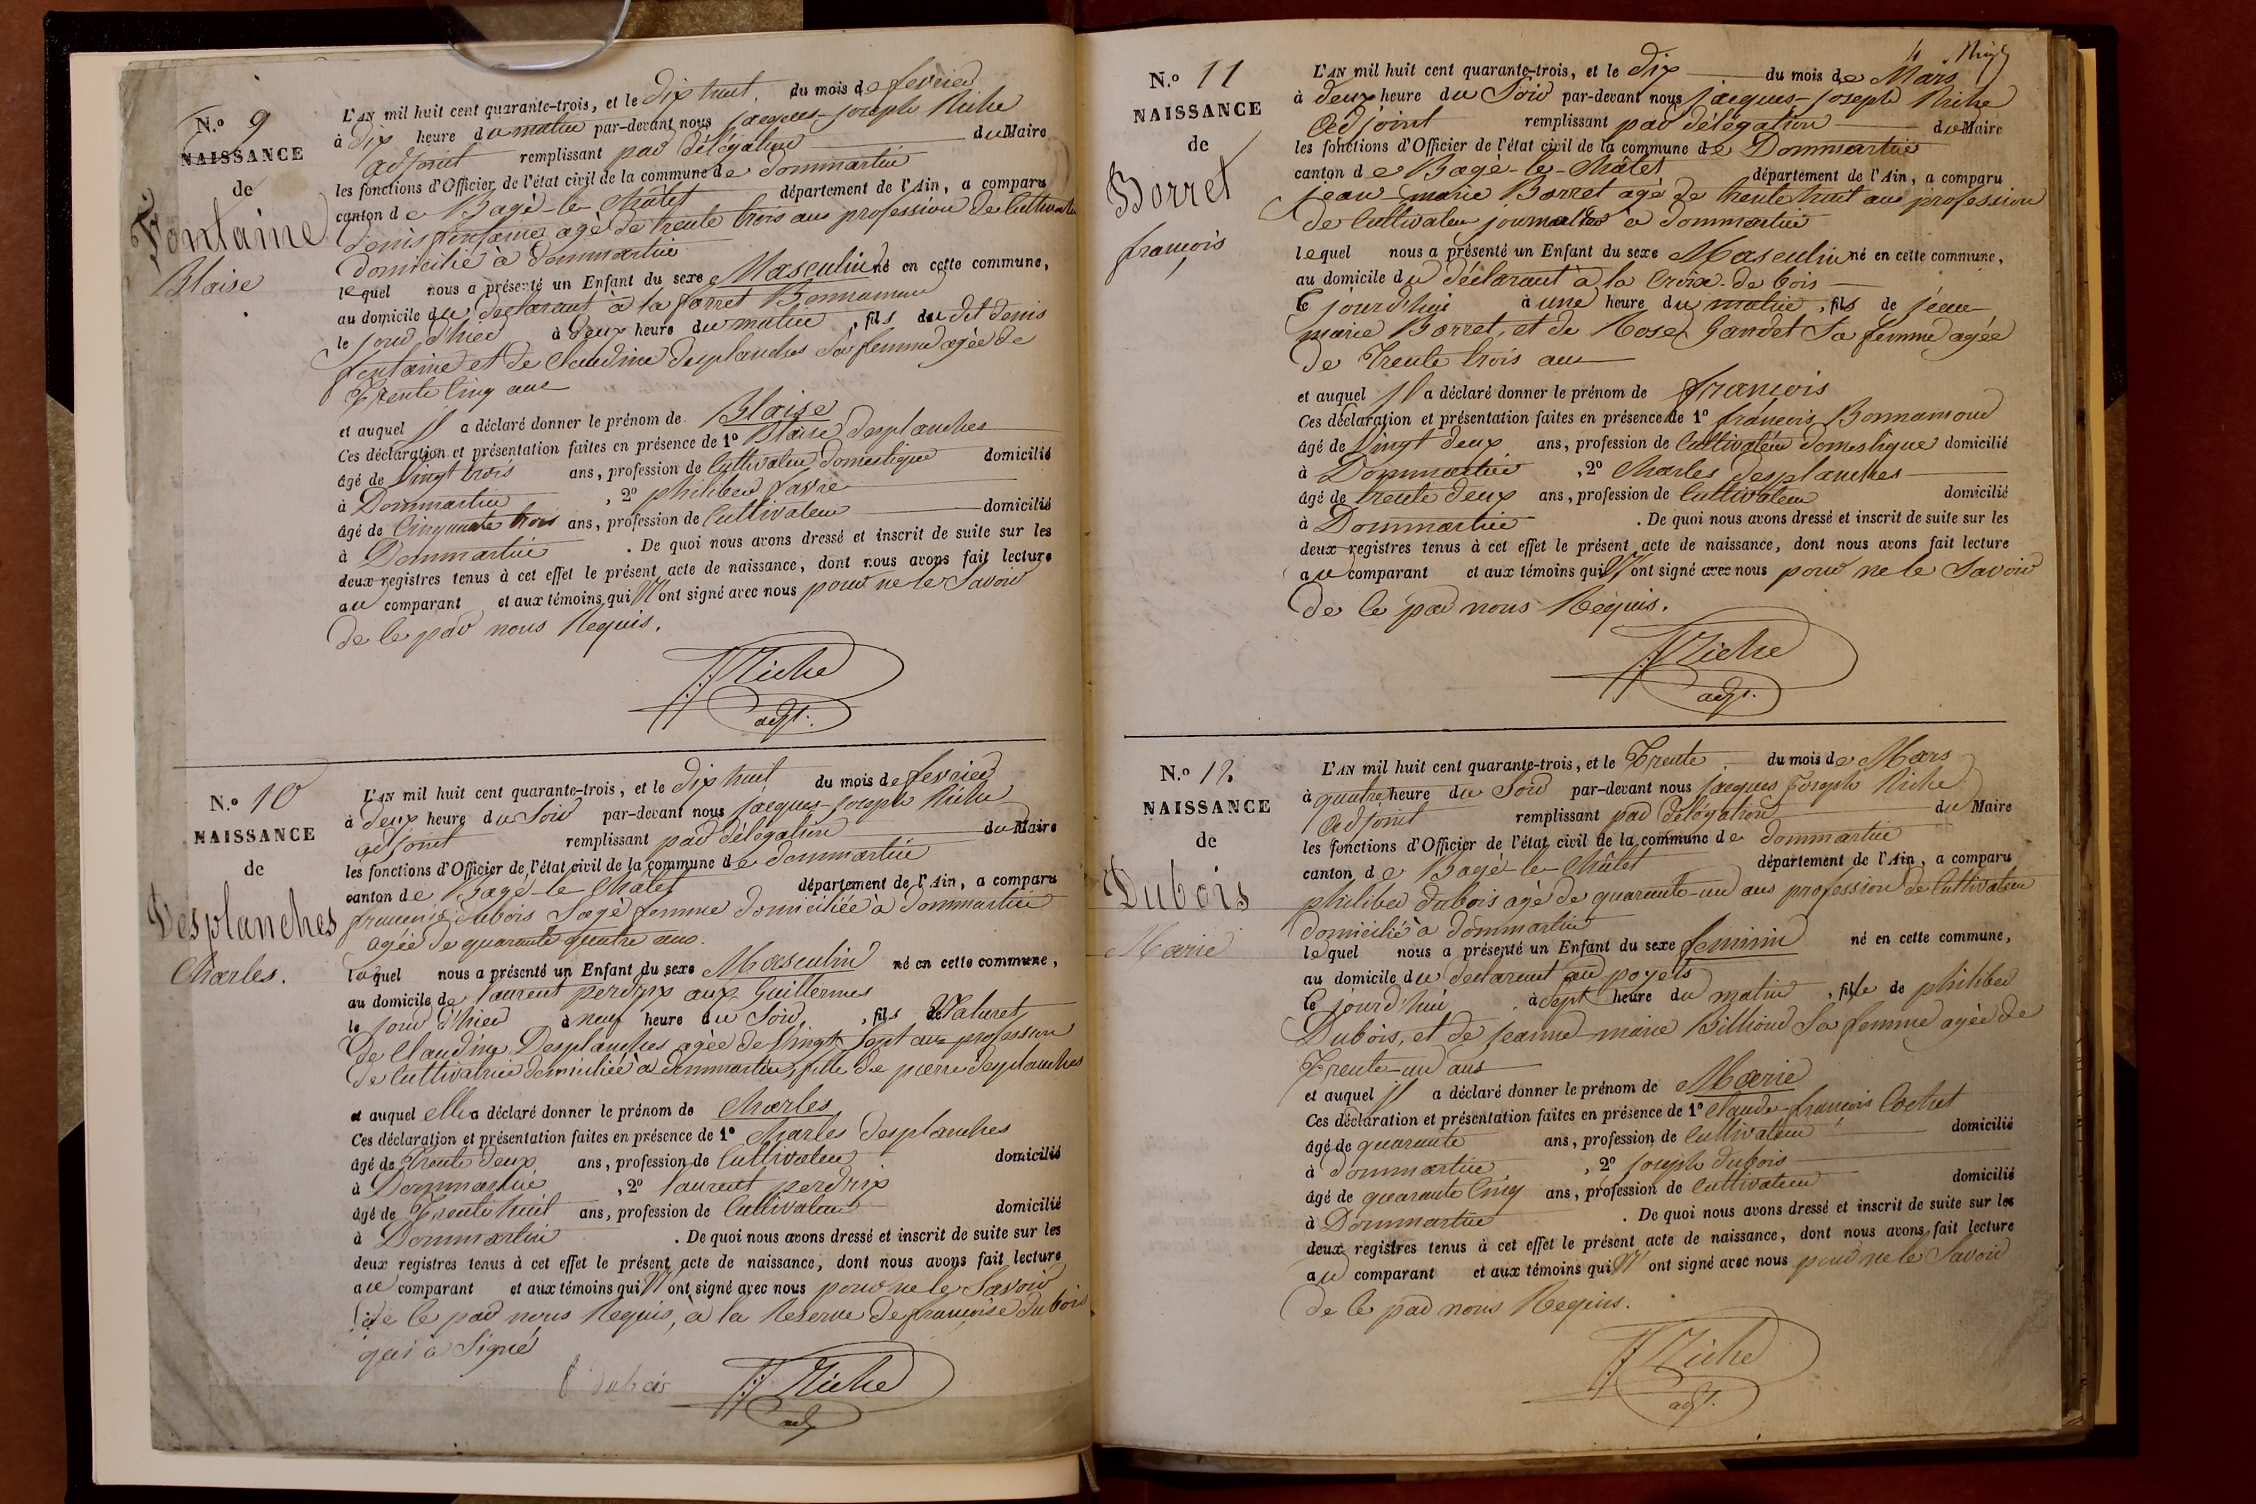 N.o 9
NAISSANCE
de
Fontaine
Blaise
L'AN mil huit cent quarante-trois, et le dix huit du mois de fevrier
à dix heure du matin par-devant nous jacques-joseph Riche
adjoint remplissant par délégation du Maire
les fonctions d'Officier de l'état civil de la commune de dommartin
canton de Bagé-le-Châtel département de l'Ain, a comparu
denis fontaine agé de trente trois ans profession de Cultivateur
domicilié à dommartin
lequel nous a présenté un Enfant du sexe Masculin né en cette commune,
au domicile du declarant à la forret Bonnamour
le jour d'hier à deux heure du matin, fils du dit denis
fontaine et de Claudine desplanches sa femme agée de
Trente Cinq ans
et auquel il a déclaré donner le prénom de Blaise
Ces déclaration et présentation faites en présence de 1o Blaise desplanches
âgé de Vingt trois ans, profession de Cultivateur domestique domicilié
à Dommartin, 2o philiber favre
âgé de Cinquante trois ans, profession de Cultivateur domicilié
à Dommartin. De quoi nous avons dressé et inscrit de suite sur les
deux registres tenus à cet effet le présent acte de naissance, dont nous avons fait lecture
au comparant et aux témoins qui n'ont signé avec nous pour ne le Savoir
de Ce par nous Requis.
JJRiche
adjt.
N.o 10
NAISSANCE
de
Desplanches
Charles.
L'AN mil huit cent quarante-trois, et le dix huit du mois de fevrier
à deux heure du Soir par-devant nous jacques-joseph Riche
adjoint remplissant par délégation du Maire
les fonctions d'Officier de l'état civil de la commune de dommartin
canton de Bagé-le-Chatel département de l'Ain, a comparu
francoise dubois Sage femme domiciliée à dommartin
agée de quarante quatre ans.
laquel nous a présenté un Enfant du sexe Masculin né en cette commune,
au domicile de laurent perdrix aux Guillermes
le jour d'hier à neuf heure du Soir, fils Naturel
de Claudine Desplanches agée de Vingt Sept ans profession
de Cultivatrice domiciliée à dommartin, fille de pierre desplanches
et auquel elle a déclaré donner le prénom de Charles
Ces déclaration et présentation faites en présence de 1o Charles desplanches
âgé de Trente deux ans, profession de Cultivateur domicilié
à Dommartin, 2o laurent perdrix
âgé de Trente huit ans, profession de Cultivateur domicilié
à Dommartin. De quoi nous avons dressé et inscrit de suite sur les
deux registres tenus à cet effet le présent acte de naissance, dont nous avons fait lecture
au comparant et aux témoins qui n'ont signé avec nous pour ne le Savoir
de Ce par nous Requis, à la Reserve de francoise dubois
qui a Signé
f dubois JJRiche
adjt
4
N.o 11
NAISSANCE
de
Borret
francois
L'AN mil huit cent quarante-trois, et le dix du mois de Mars
à deux heure du Soir par-devant nous jacques-joseph Riche
Adjoint remplissant par délégation du Maire
les fonctions d'Officier de l'état civil de la commune de Dommartin
canton de Bagé-le-Châtel département de l'Ain, a comparu
jean-marie Borret agé de trente huit ans profession
de Cultivateur journalier à dommartin
lequel nous a présenté un Enfant du sexe Masculin né en cette commune,
au domicile du déclarant à la Croix-de-bois
le jourd'hui à une heure du matin, fils de jean
marie Borret, et de Rose Gandet Sa femme agée
de Trente trois ans
et auquel il a déclaré donner le prénom de françois
Ces déclaration et présentation faites en présence de 1o francois Bonnamour
âgé de Vingt deux ans, profession de Cultivateur domestique domicilié
à Dommartin, 2o Charles desplanches
âgé de trente deux ans, profession de Cultivateur domicilié
à Dommartin. De quoi nous avons dressé et inscrit de suite sur les
deux registres tenus à cet effet le présent acte de naissance, dont nous avons fait lecture
au comparant et aux témoins qui n'ont signé avec nous pour ne le Savoir
de Ce par nous Requis.
JJRiche
adjt.
N.o 12
NAISSANCE
de
Dubois
Marie
L'AN mil huit cent quarante-trois, et le Trente du mois de Mars
à quatre heure du Soir par-devant nous jacques Joseph Riche
Adjoint remplissant par Délégation du Maire
les fonctions d'Officier de l'état civil de la commune de dommartin
canton de Bagé-le-Châtel département de l'Ain, a comparu
philiber dubois agé de quarante-un ans profession de Cultivateur
domicilié à dommartin
lequel nous a présenté un Enfant du sexe feminin né en cette commune,
au domicile du declarant au poyets
le jourd'hui à Sept heure du matin, fille de philiber
Dubois, et de jeanne-marie Billioud Sa femme agée de
Trente-un ans
et auquel il a déclaré donner le prénom de Marie
Ces déclaration et présentation faites en présence de 1o Claude-francois Cochet
âgé de quarante ans, profession de Cultivateur domicilié
à dommartin, 2o joseph dubois
âgé de quarante Cinq ans, profession de Cultivateur domicilié
à Dommartin. De quoi nous avons dressé et inscrit de suite sur les
deux registres tenus à cet effet le présent acte de naissance, dont nous avons fait lecture
au comparant et aux témoins qui n'ont signé avec nous pour ne le Savoir
de Ce par nous Requis.
JJRiche
adjt.